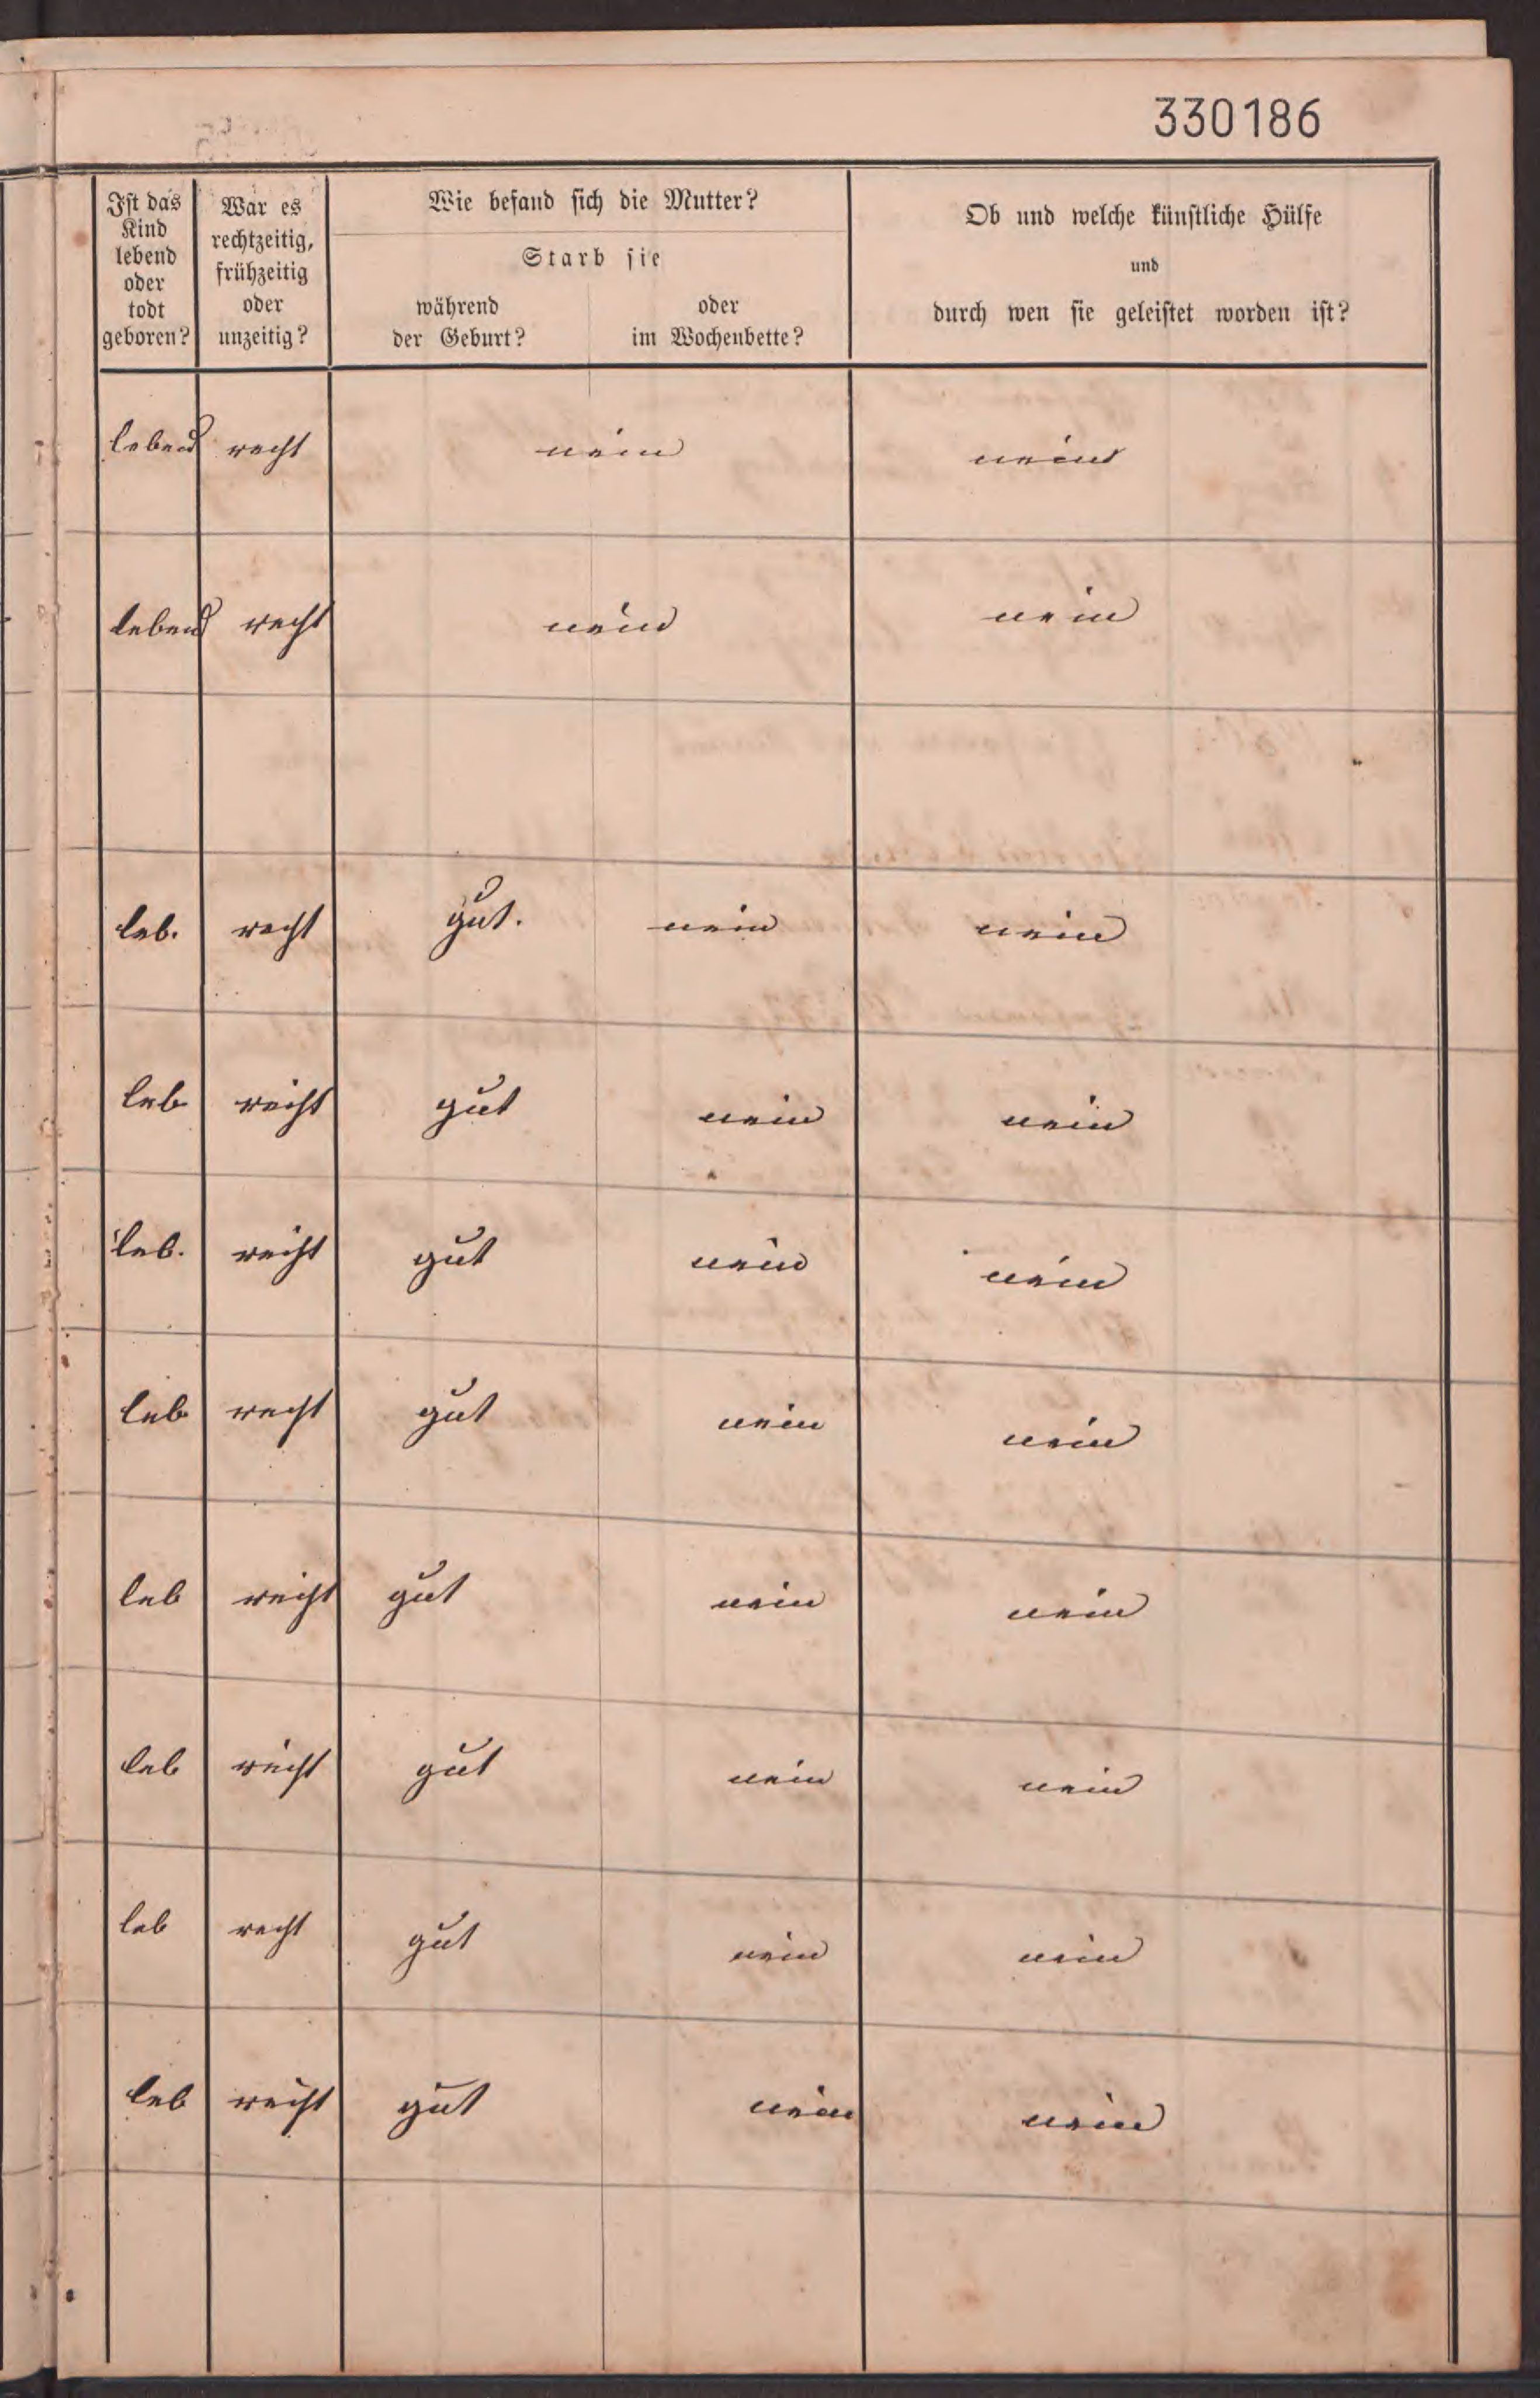 330186
Ist das Kind lebend oder todt geboren?
War es rechtzeitig, frühzeitig oder unzeitig?
Wie befand sich die Mutter?
Starb sie
während der Geburt?
oder im Wochenbette?
Ob und welche künstliche Hülfe
und
durch wen sie geleistet worden ist?
lebend recht nein nein
lebend recht nein nein
leb. recht gut. nein nein
leb recht gut nein nein
leb. recht gut nein nein
leb recht gut nein nein
leb recht gut nein nein
leb recht gut nein nein
leb recht gut nein nein
leb recht gut nein nein